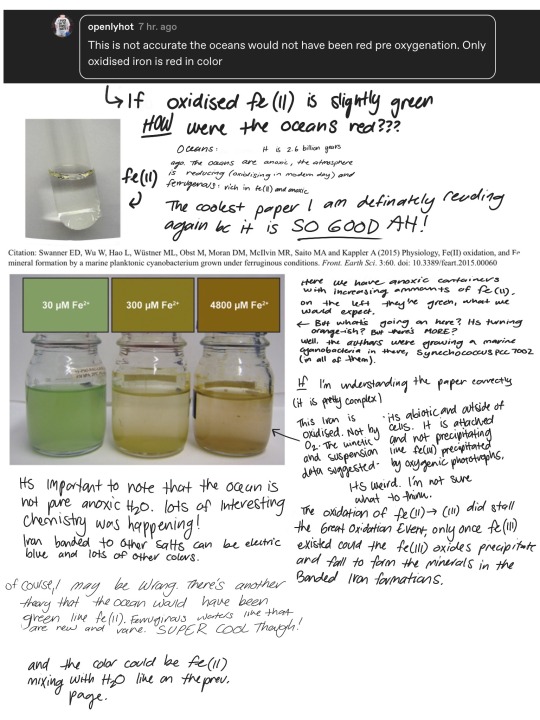 openlyhot 7 hr. ago
This is not accurate the oceans would not have been red pre oxygenation. Only
oxidised iron is red in color
If oxidised fe(II) is slightly green
HOW were the oceans red???
Oceans: It is 2.6 billion years
ago. The oceans are anoxic, the atmosphere
is reducing (oxidising in modern day) and
ferrugenous: rich in fe(II) and anoxic
fe(II)
The coolest paper I am definately reading
again bc it is SO GOOD AH!
Citation: Swanner ED, Wu W, Hao L, Wüstner ML, Obst M, Moran DM, McIlvin MR, Saito MA and Kappler A (2015) Physiology, Fe(II) oxidation, and Fe
mineral formation by a marine planktonic cyanobacterium grown under ferruginous conditions. Front. Earth Sci. 3:60. doi: 10.3389/feart.2015.00060
30 µM Fe²⁺
300 µM Fe²⁺
4800 µM Fe²⁺
Here we have anoxic containers
with increasing ammounts of fe(II).
on the left they're green, what we
would expect.
← But what's going on here? Its turning
orange-ish? But theres MORE?
Well, the authors were growing a marine
cyanobacteria in there, Synechococcus PCC 7002
(in all of them).
If I'm understanding the paper correctly
(it is pretty complex)
This iron is
oxidised. Not by
O₂. The kinetic
and suspension
data suggested·
·its abiotic and outside of
cells. It is attached
and not precipitating
like fe(III) precipitated
by oxygenic phototrophs.
Its weird. I'm not sure
what to think.
The oxidation of fe(II) → (III) did stall
the Great Oxidation Event, only once fe(III)
existed could the fe(III) oxides precipitate
and fall to form the minerals in the
Banded Iron formations.
Its important to note that the ocean is
not pure anoxic H₂O. lots of interesting
chemistry was happening!
Iron bonded to other salts can be electric
blue and lots of other colors.
of course, I may be wrong. There's another
theory that the ocean would have been
green like fe(II). Ferruginous waters like that
are new and rare. SUPER COOL Though!
and the color could be fe(II)
mixing with H₂O like on the prev.
page.